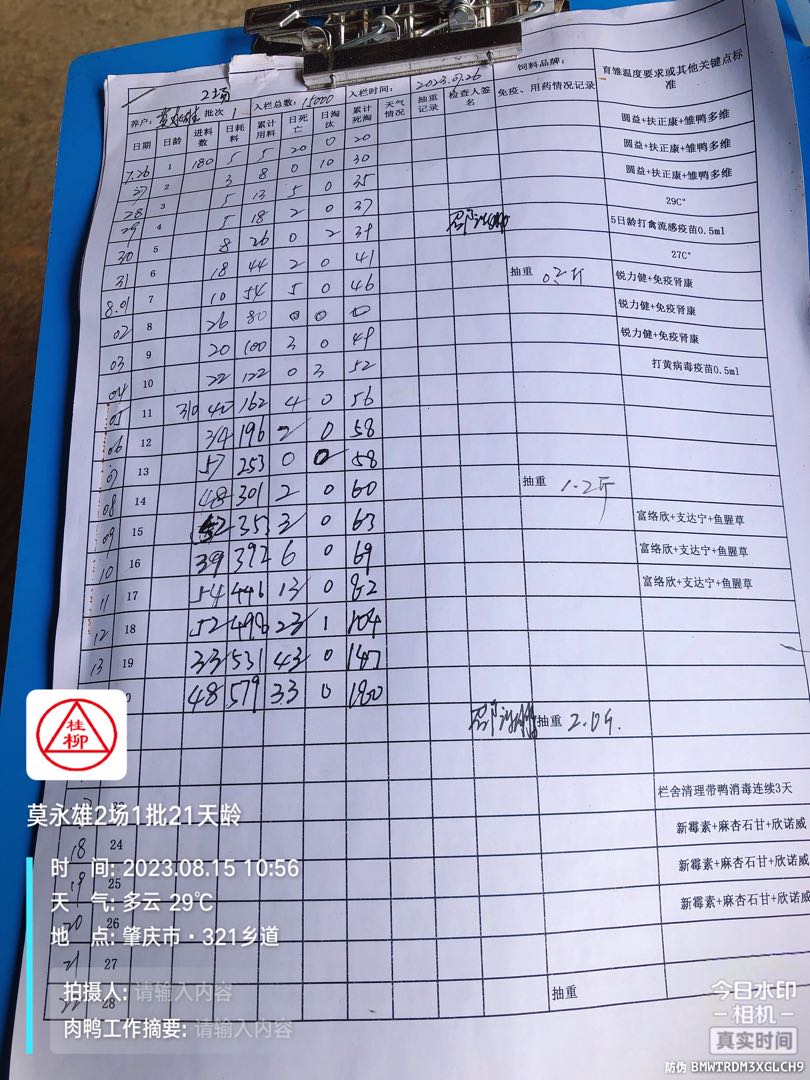 2场
养户: 莫永雄 批次 1 入栏总数: 15000 入栏时间: 2023.07.26 饲料品牌: 育雏温度要求或其他关键点标准
日期 日龄 进料数 日耗料 累计用料 日死亡 日淘汰 累计死淘 天气情况 抽重记录 检查人签名 免疫、用药情况记录
7.26 1 180 5 5 20 0 20 圆益+扶正康+雏鸭多维
27 2 3 8 0 10 30 圆益+扶正康+雏鸭多维
28 3 5 13 5 0 35 圆益+扶正康+雏鸭多维
29 4 5 18 2 0 37 29C°
30 5 8 26 0 2 39 5日龄打禽流感疫苗0.5ml
31 6 18 44 2 0 41 27C°
8.01 7 10 54 5 0 46 抽重 0.2斤 锐力健+免疫肾康
02 8 26 80 0 0 0 锐力健+免疫肾康
03 9 20 100 3 0 49 锐力健+免疫肾康
04 10 22 122 0 3 52 打黄病毒疫苗0.5ml
05 11 310 40 162 4 0 56
06 12 34 196 2 0 58
07 13 57 253 0 0 58
08 14 48 301 2 0 60 抽重 1.2斤
09 15 52 353 3 0 63 富络欣+支达宁+鱼腥草
10 16 39 392 6 0 69 富络欣+支达宁+鱼腥草
11 17 54 446 13 0 82 富络欣+支达宁+鱼腥草
12 18 52 498 23 1 104
13 19 33 531 43 0 147
0 48 579 33 0 180
抽重 2.0斤.
栏舍清理带鸭消毒连续3天
18 24 新霉素+麻杏石甘+欣诺威
19 25 新霉素+麻杏石甘+欣诺威
20 26 新霉素+麻杏石甘+欣诺威
21 27
22 28 抽重
桂柳
莫永雄2场1批21天龄
时 间: 2023.08.15 10:56
天 气: 多云 29℃
地 点: 肇庆市·321乡道
拍摄人: 请输入内容
肉鸭工作摘要: 请输入内容
今日水印
-相机-
真实时间
防伪 BMWTRDM3XGLCH9